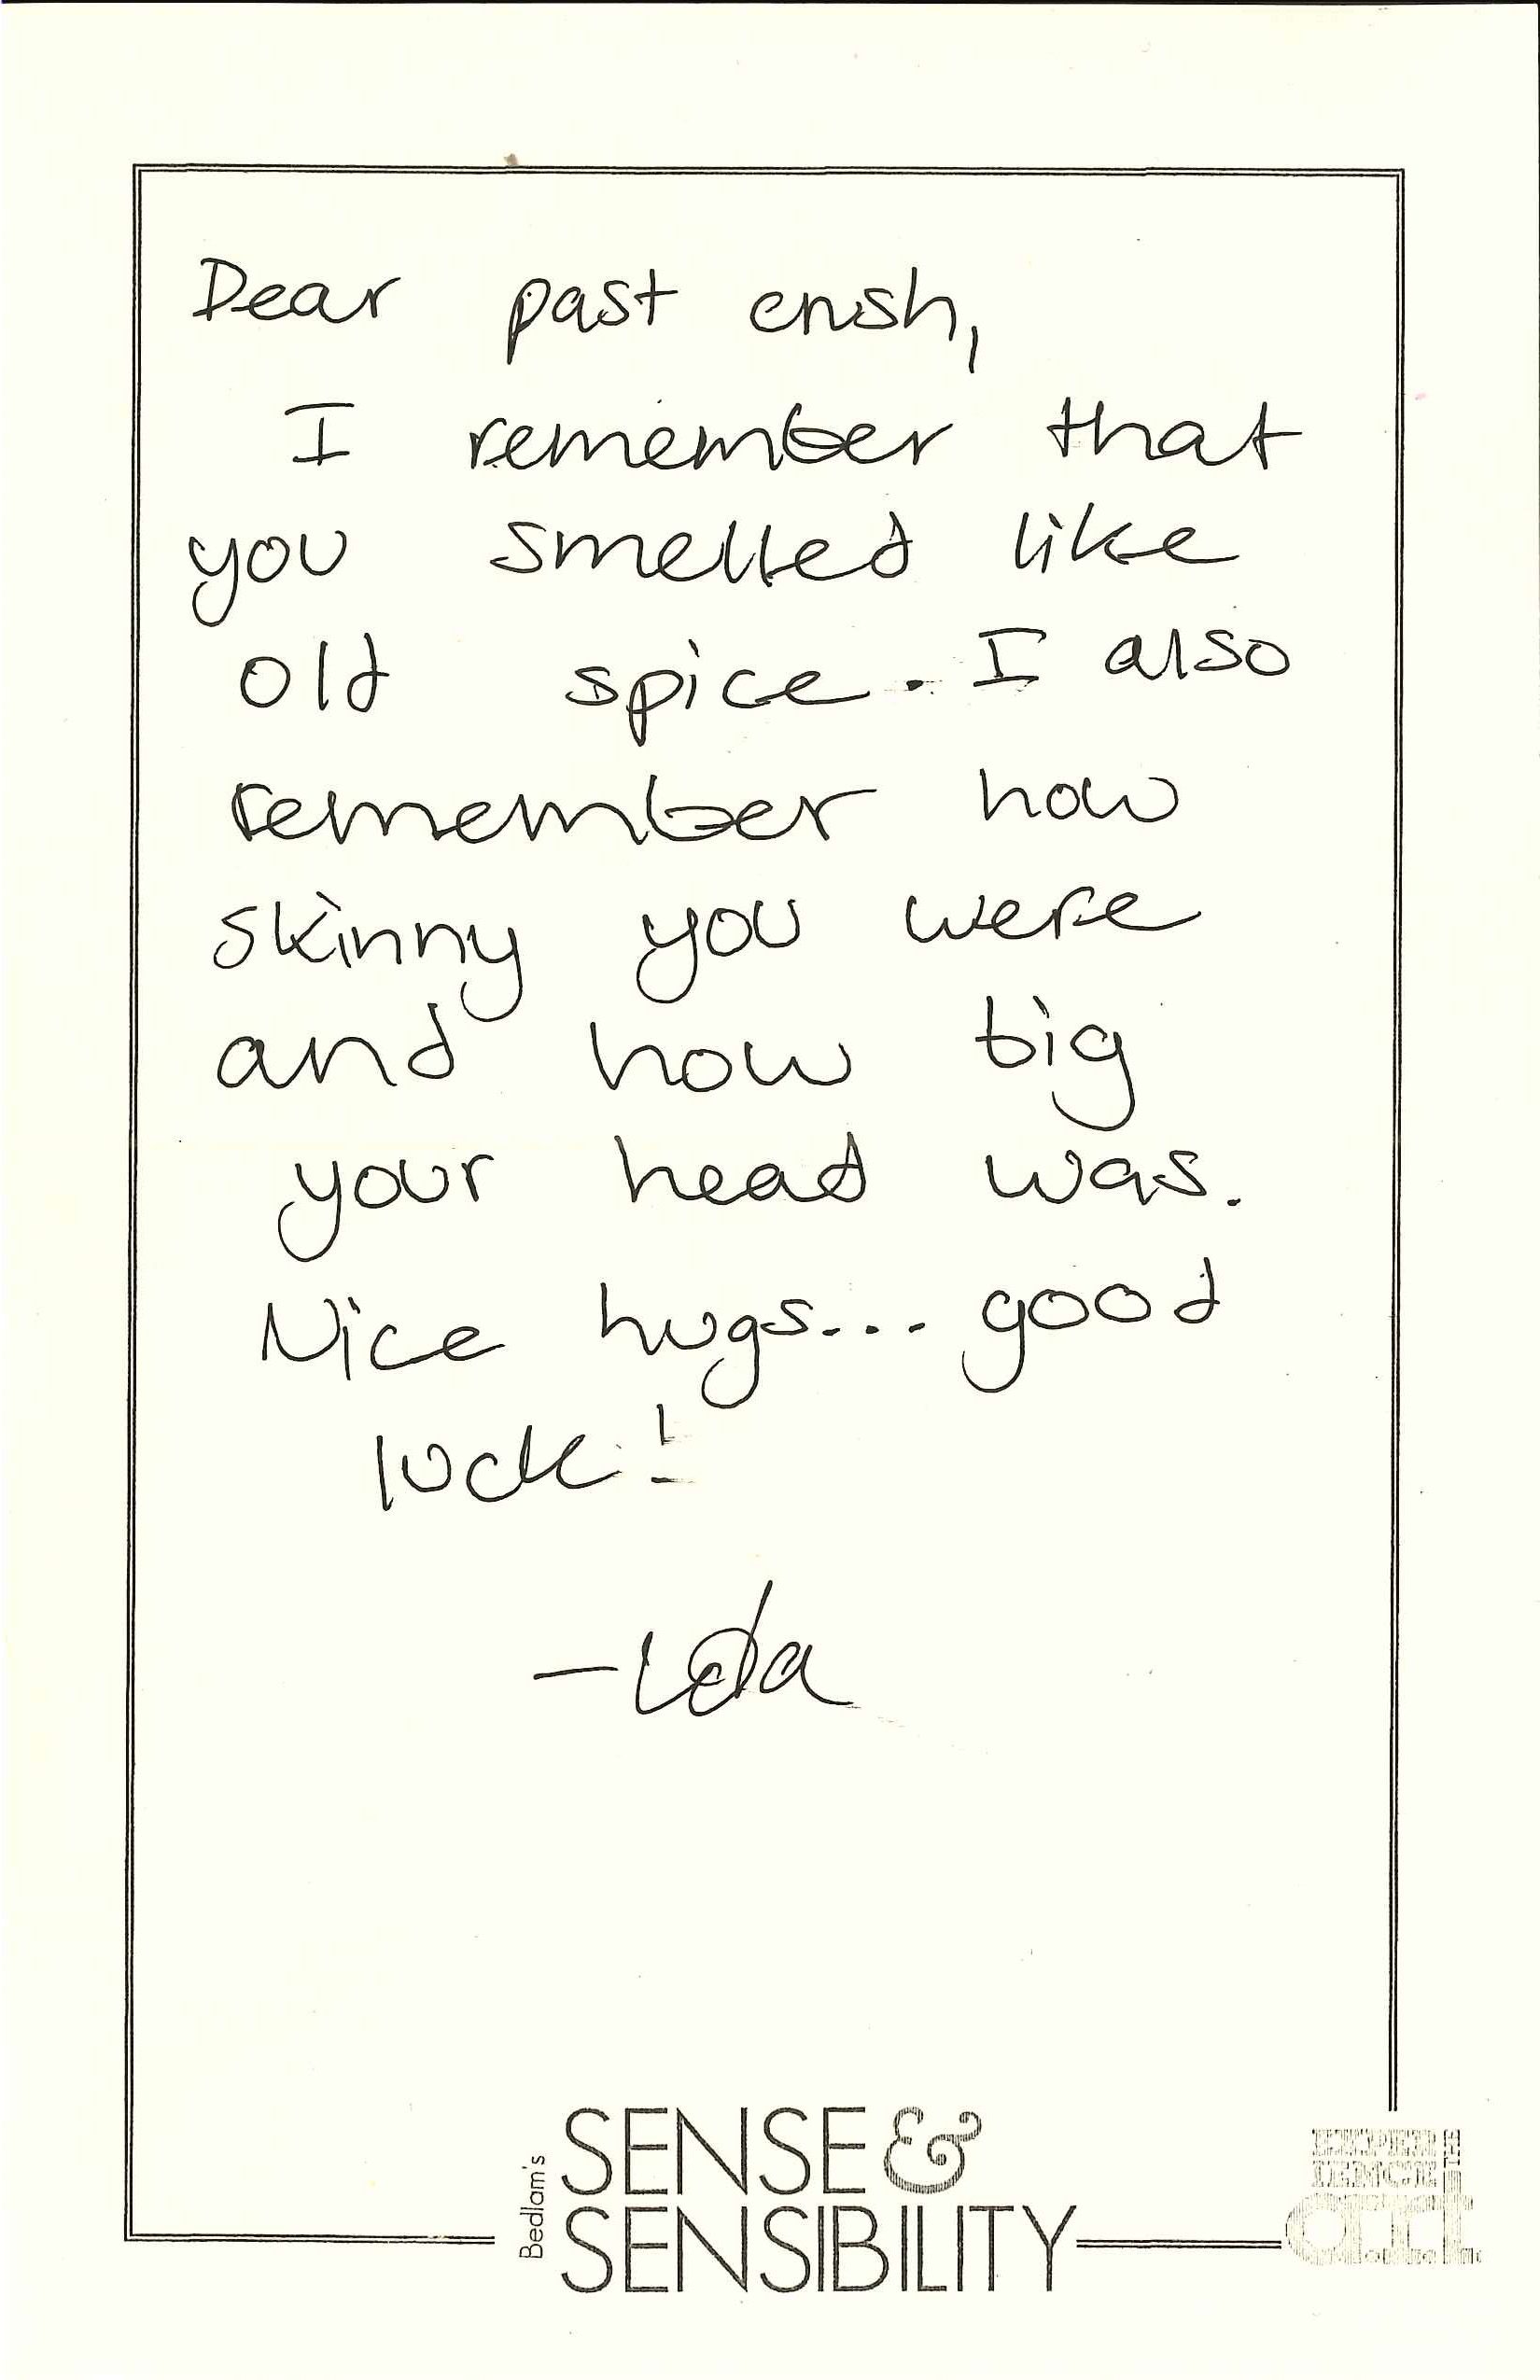 Dear past crush,
I remember that
you smelled like
old spice. I also
remember how
skinny you were
and how big
your head was.
Nice hugs... good
luck!
Bedlam's
SENSE &
SENSIBILITY
EXPERIENCE
THE
a.r.t.